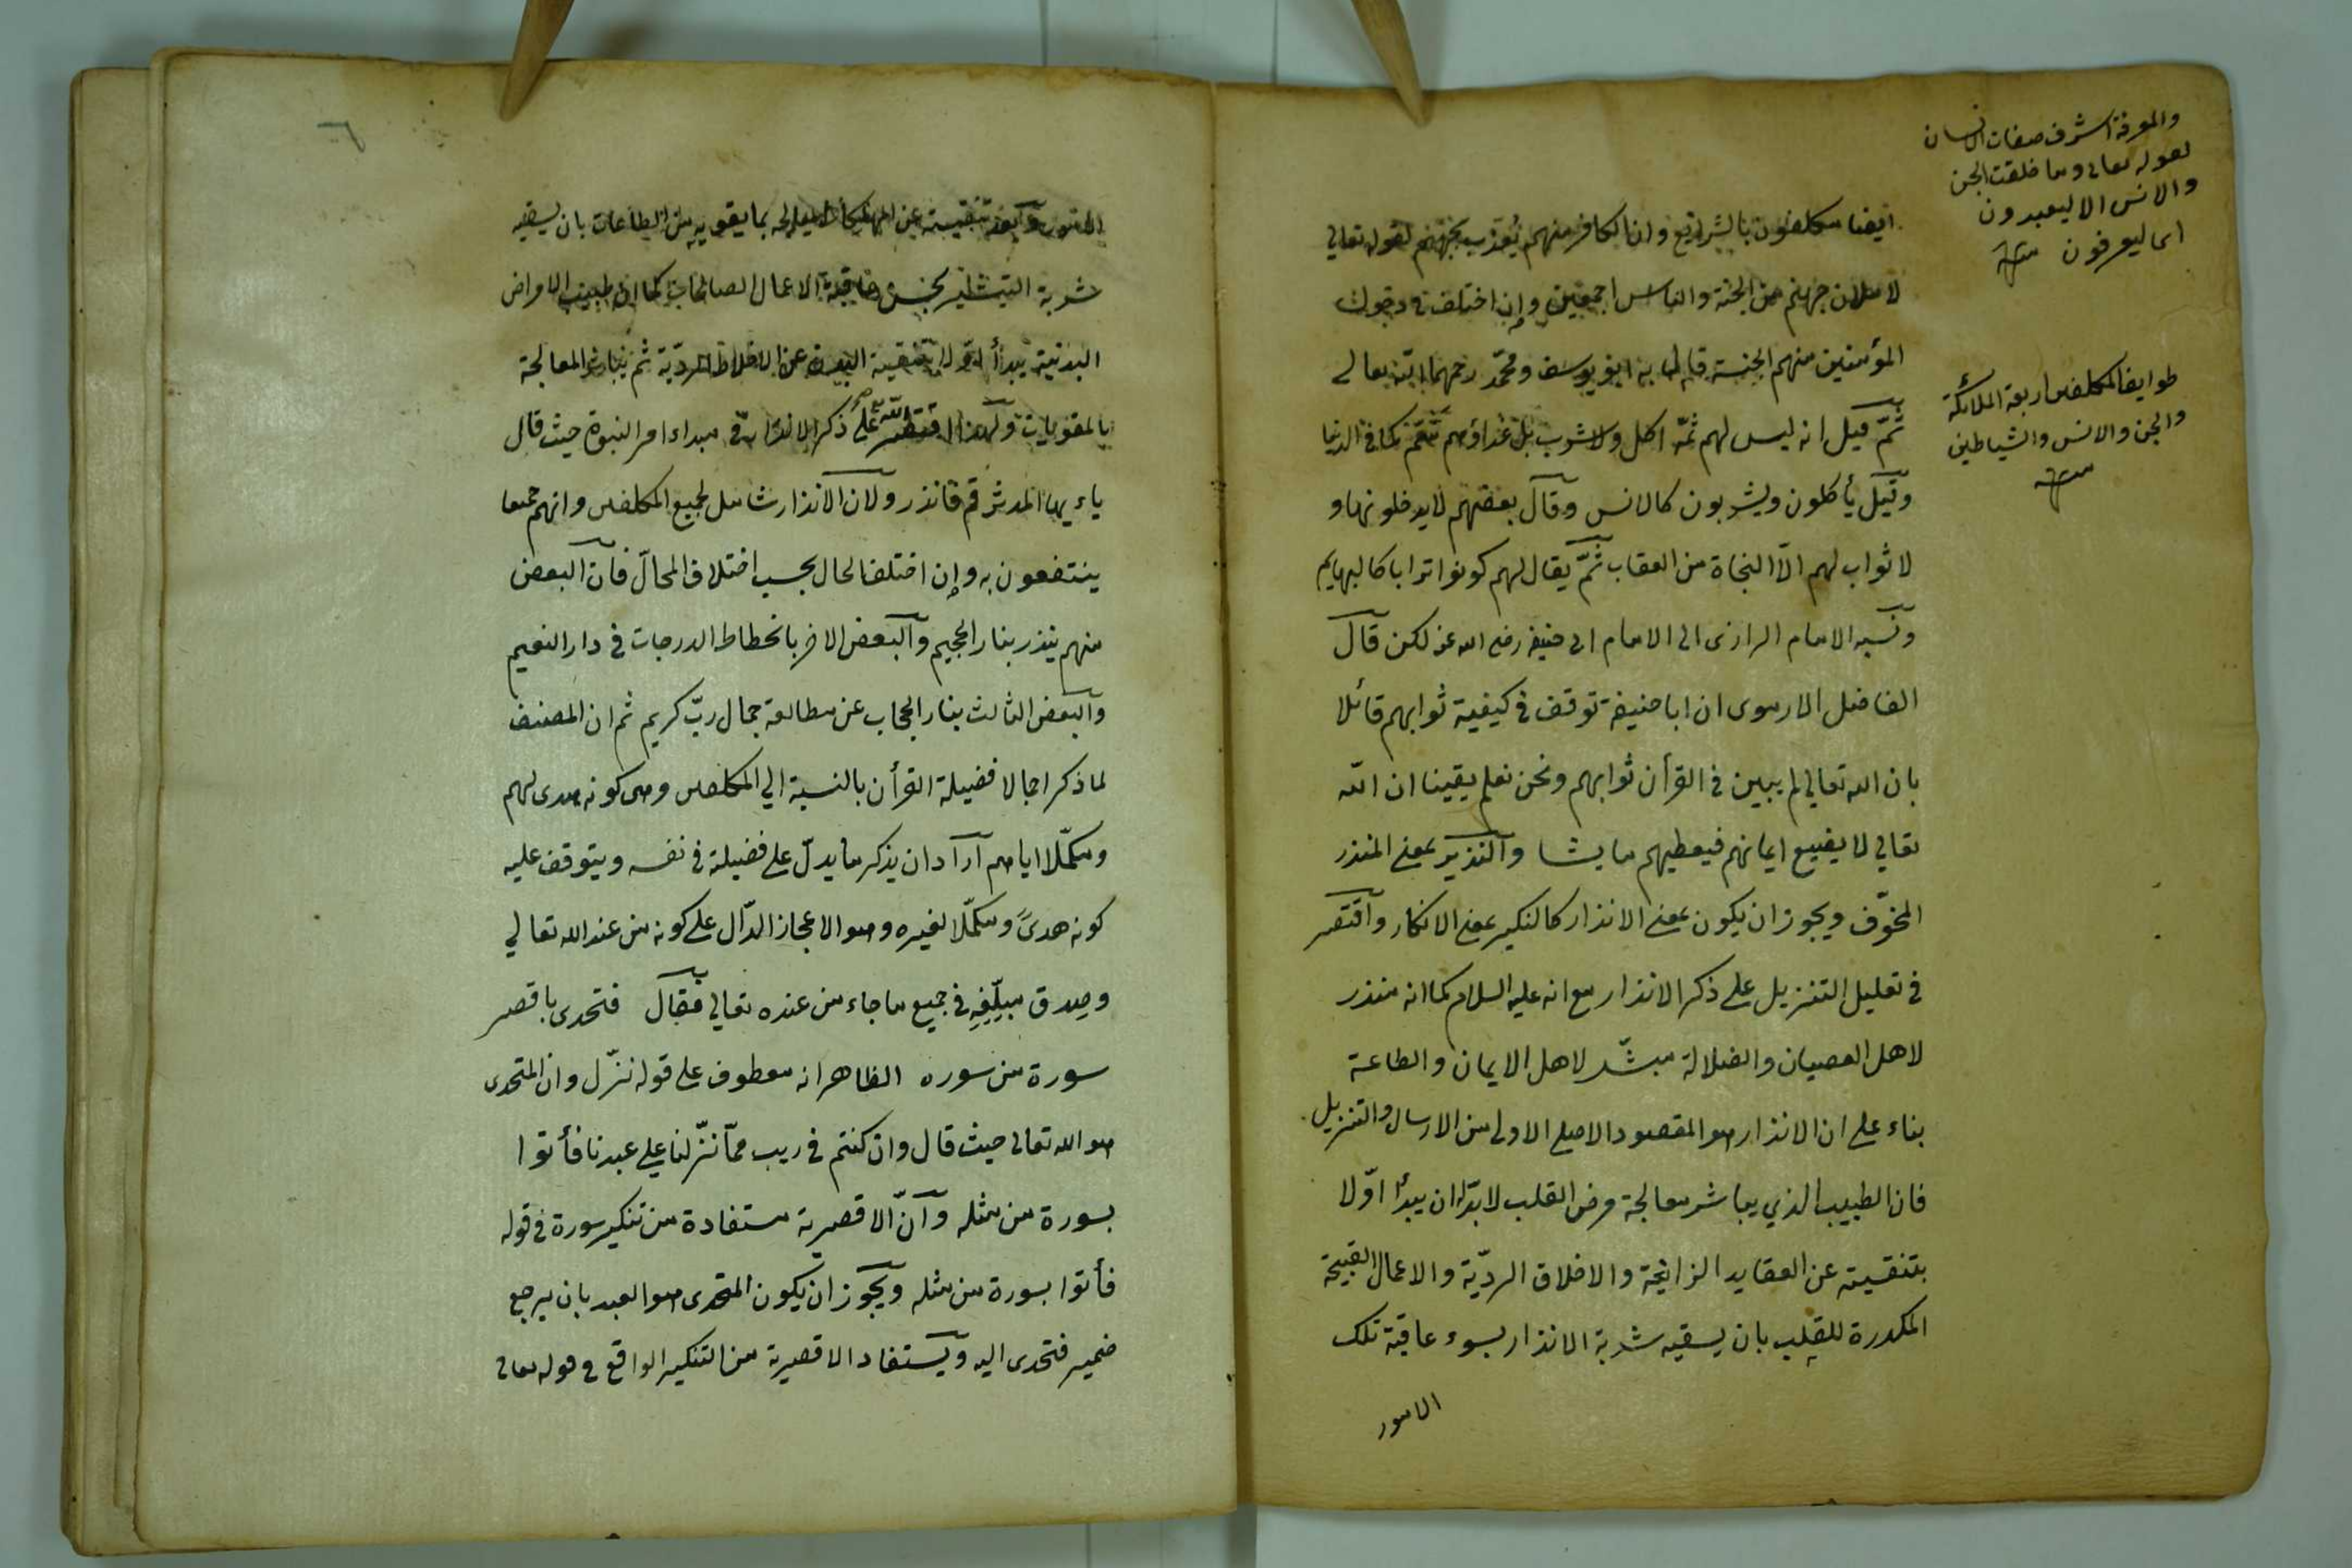 والمعرفة اشرف صفات الانسان
لقوله تعالى وما خلقت الجن
والانس الا ليعبدون
اى ليعرفون
طوايف المكلفين اربعة الملائكة
والجن والانس والشياطين
ايضا مكلفون بالشرايع وان الكافر منهم يُعذب بجهنم لقوله تعالى
لاملان جهنم من الجنة والناس اجمعين وإن اختلف فى دخول
المؤمنين منهم الجنة قال به ابو يوسف ومحمّد رحمهما الله تعالى
ثمّ قيل انه ليس لهم ثَمّه اكل ولا شرب بل غذاؤهم كما فى الدنيا
وقيل يأكلون ويشربون كالانس وقال بعضهم لا يدخلونها و
لا ثواب لهم الّا النجاة من العقاب ثمّ يقال لهم كونوا ترابا كالبهايم
ونسبه الامام الرازى الى الامام ابى حنيفة رضى الله عنه لكن قال
الفاضل الارموى ان ابا حنيفة توقف فى كيفية ثوابهم قائلا
بان الله تعالى لم يبين فى القرأن ثوابهم ونحن نعلم يقينا ان الله
تعالى لا يضيع ايمانهم فيعطيهم ما يشا والنذير بمعنى المنذر
المخوّف ويجوز ان يكون بمعنى الانذار كالنكير بمعنى الانكار واقتصر
فى تعليل التنزيل على ذكر الانذار مع انه عليه السلام كما انه منذر
لاهل العصيان والضلالة مبشّر لاهل الايمان والطاعة
بناء على ان الانذار هو المقصود الاصلى الاولى من الارسال والتنزيل
فان الطبيب الذي يباشر معالجة مرض القلب لابدّ له ان يبدأ اوّلا
بتنقيته عن العقايد الزائغة والاخلاق الرديّة والاعمال القبيحة
المكدرة للقلب بان يسقيه شربة الانذار بسوء عاقبة تلك
الامور
الامور وبعد تنقيته عن المهلكات يعالجه بما يقويه من الطاعات بان يسقيه
شربة التبشير بحسن عاقبة الاعمال الصالحات كما ان طبيب الامراض
البدنية يبدأ اوّلا بتنقية البدن عن الاخلاط الرديّة ثم يباشر المعالجة
بالمقويات ولهذا اقتصر على ذكر الانذار فى مبداء امر النبوة حيث قال
ياءيها المدثر قم فانذر ولان الانذار شامل لجميع المكلفين وانهم جميعا
ينتفعون به وإن اختلف الحال بحسب اختلاف المحالّ فان البعض
منهم ينذر بنار الجحيم والبعض الاخر بانحطاط الدرجات فى دار النعيم
والبعض الثالث بنار الحجاب عن مطالعة جمال ربّ كريم ثم ان المصنف
لما ذكر اجمالا فضيلة القرأن بالنسبة الي المكلفين وهى كونه هدى لهم
ومكمّلا اياهم اراد ان يذكر ما يدلّ على فضيلة فى نفسه ويتوقف عليه
كونه هدىً ومكمّلا لغيره وهو الاعجاز الدّال على كونه من عند الله تعالي
وصدق مبلِّغِهِ فى جميع ما جاء من عنده تعالي فقال فتحدى باقصر
سورة من سوره الظاهر انه معطوف على قوله نزّل وان المتحدى
هو الله تعالى حيث قال وان كنتم فى ريب ممّا نزّلنا على عبدنا فأتوا
بسورة من مثله وانّ الاقصرية مستفادة من تنكير سورة فى قوله
فأتوا بسورة من مثله ويجوز ان يكون المتحدى هو العبد بان يرجع
ضمير فتحدى اليه ويستفاد الاقصرية من التنكير الواقع فى قوله تعالى